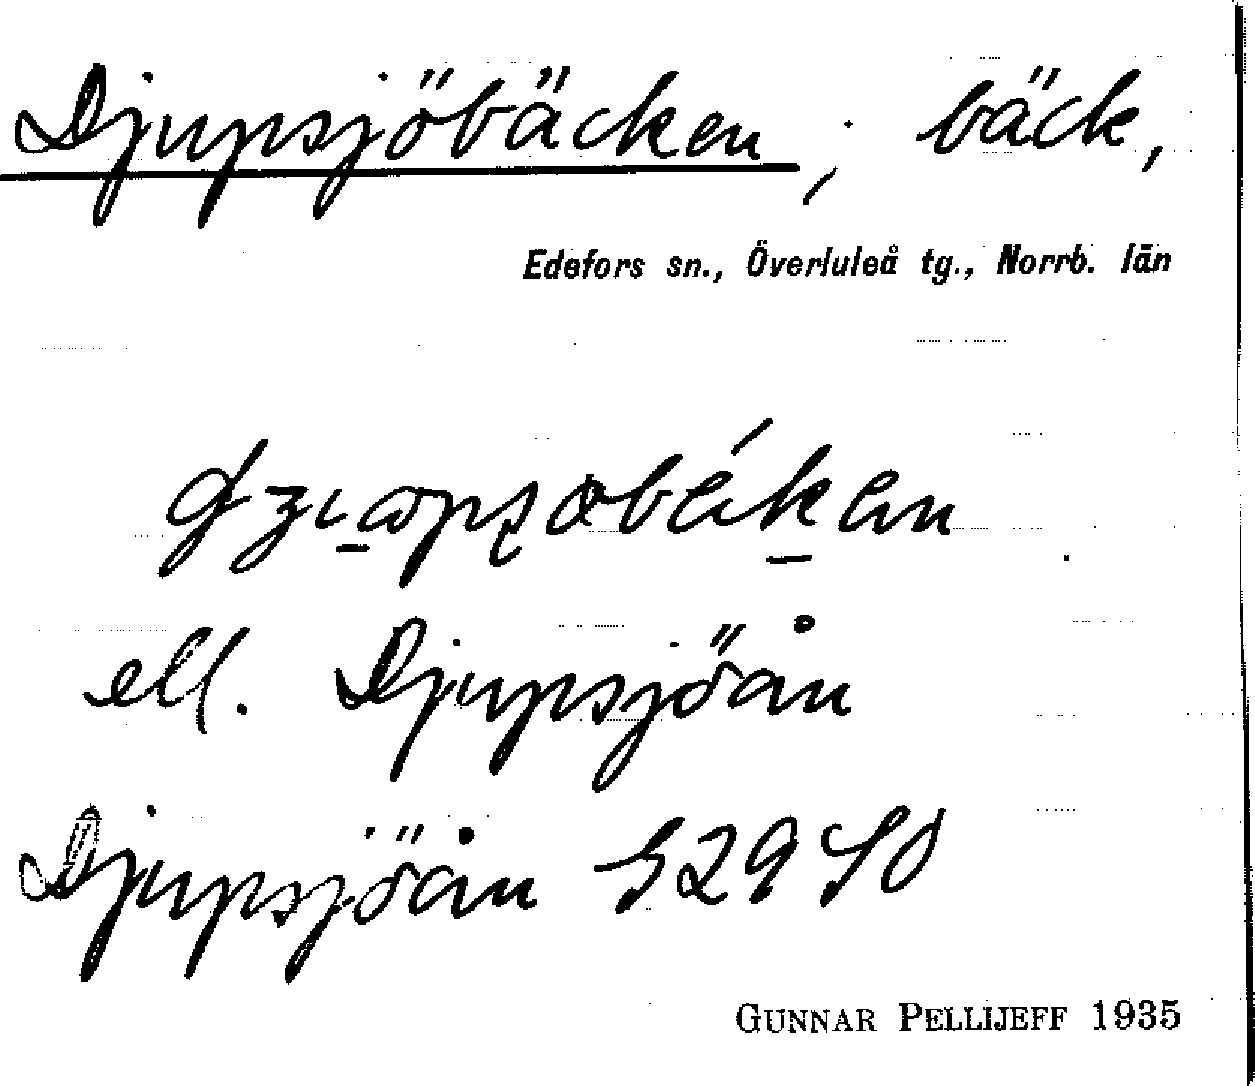 Djupsjöbäcken, bäck,
Edefors sn., Överluleå tg., Norrb. län
ell. Djupsjöån
Djupsjöån S29 SO
GUNNAR PELLIJEFF 1935